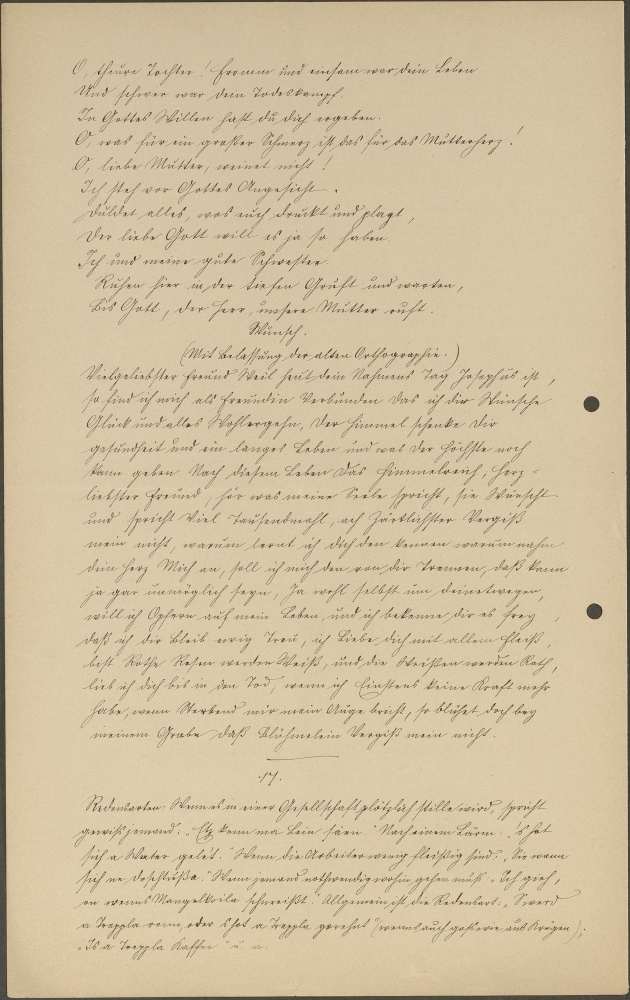 O, theure Tochter! Fromm und einsam war dein Leben
Und schwer war dein Todeskampf.
In Gottes Willen hast du dich ergeben.
O, was für ein großer Schmerz ist das für das Mutterherz!
O, liebe Mutter, weinet nicht!
Ich steh vor Gottes Angesicht.
Duldet alles, was euch drückt und plagt,
Der liebe Gott will es ja so haben.
Ich und meine gute Schwester
Ruhen hier in der tiefen Gruft und warten,
Bis Gott, der Herr, unsere Mutter ruft.
Wunsch.
(Mit Belassung der alten Orthographie.)
Vielgeliebster Freund Weil heut dein Nahmens Tag Josephus ist,
so find ich mich als Freundin Verbunden Das ich dir Wünsche
Glück und alles Wohlergehn, Der Himmel schenke Dir
gesundheit und ein langes Leben und was Der Höchste noch
kann geben Nach diesem Leben Das Himmelreich, Herz-
liebster Freund, hör was meine Seele spricht, sie Wünscht
und spricht Viel Tausendmahl, ach Zärtlichster Vergiß
mein nicht, warum lernt ich dich den kennen warum nahm
dein Herz Mich an, soll ich mich den von dir Trennen, daß kann
ja gar unmöglich seyn, Ja wohl selbst um deinetwegen,
will ich Opfern auf mein Leben, und ich bekenne dir es frey,
daß ich dir bleib ewig Treu, ich Liebe dich mit allem Fleiß,
bist Rothe Rosen werden Weiß, und die Weißen werden Roth,
lieb ich dich bis in den Tod, wenn ich Einstens keine Kraft mehr
habe, wenn Sterbend mir mein Auge bricht, so blühet doch bey
meinem Grabe Daß Blühmelein Vergiß mein nicht.
17.
Redensarten: Wenn es in einer Gesellschaft plötzlich stille wird, spricht
gewiß jemand: „Etz kenn ma Lein säen." Nach einem Lärm: „'s hot
sich a Water gelet." Wenn die Arbeiter wenig fleißig sind:
sich ne Wenn jemand nothwendig wohin gehen muß: „Ich gieh,
on wenns Mangelkeila schneißt." Allgemein ist die Redensart: „'s werd
a Treppla renn, oder 's hot a Treppla gerehnt" (wenn's auch goß wie aus Krügen);
„Is a Treppla Kaffee" u. a.